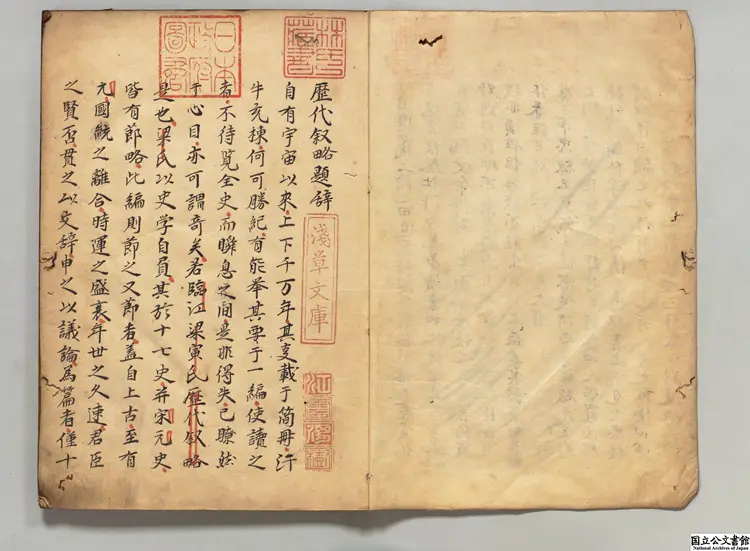 歷代叙略題辞
自有宇宙以來上下千万年其事載于簡冊汗
牛充棟何可勝紀有能举其要于一編使讀之
者不待览全史而瞬息之间是非得失已瞭然
于心目亦可謂奇矣若臨江梁寅氏歷代叙略
是也梁氏以史学自負其於十七史并宋元史
皆有節略此編則節之又節者盖自上古至有
元國統之離合時運之盛衰年世之久速君臣
之賢否貫之以文辞申之以議論為篇者僅十
日本政府圖書
林氏藏書
淺草文庫
江雲渭樹
国立公文書館
National Archives of Japan